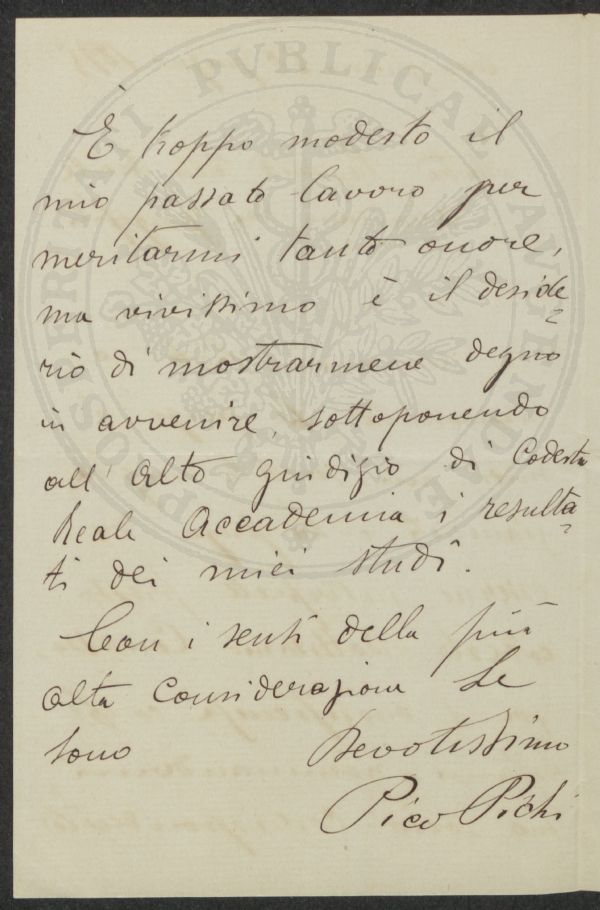 È troppo modesto il
mio passato lavoro per
meritarmi tanto onore,
ma vivissimo è il deside=
rio di mostrarmene degno
in avvenire, sottoponendo
all' alto giudizio di Codesta
Reale Accademia i resulta=
ti dei miei studî.
Con i sensi della più
alta Considerazione Le
sono Devotissimo
Pico Pichi